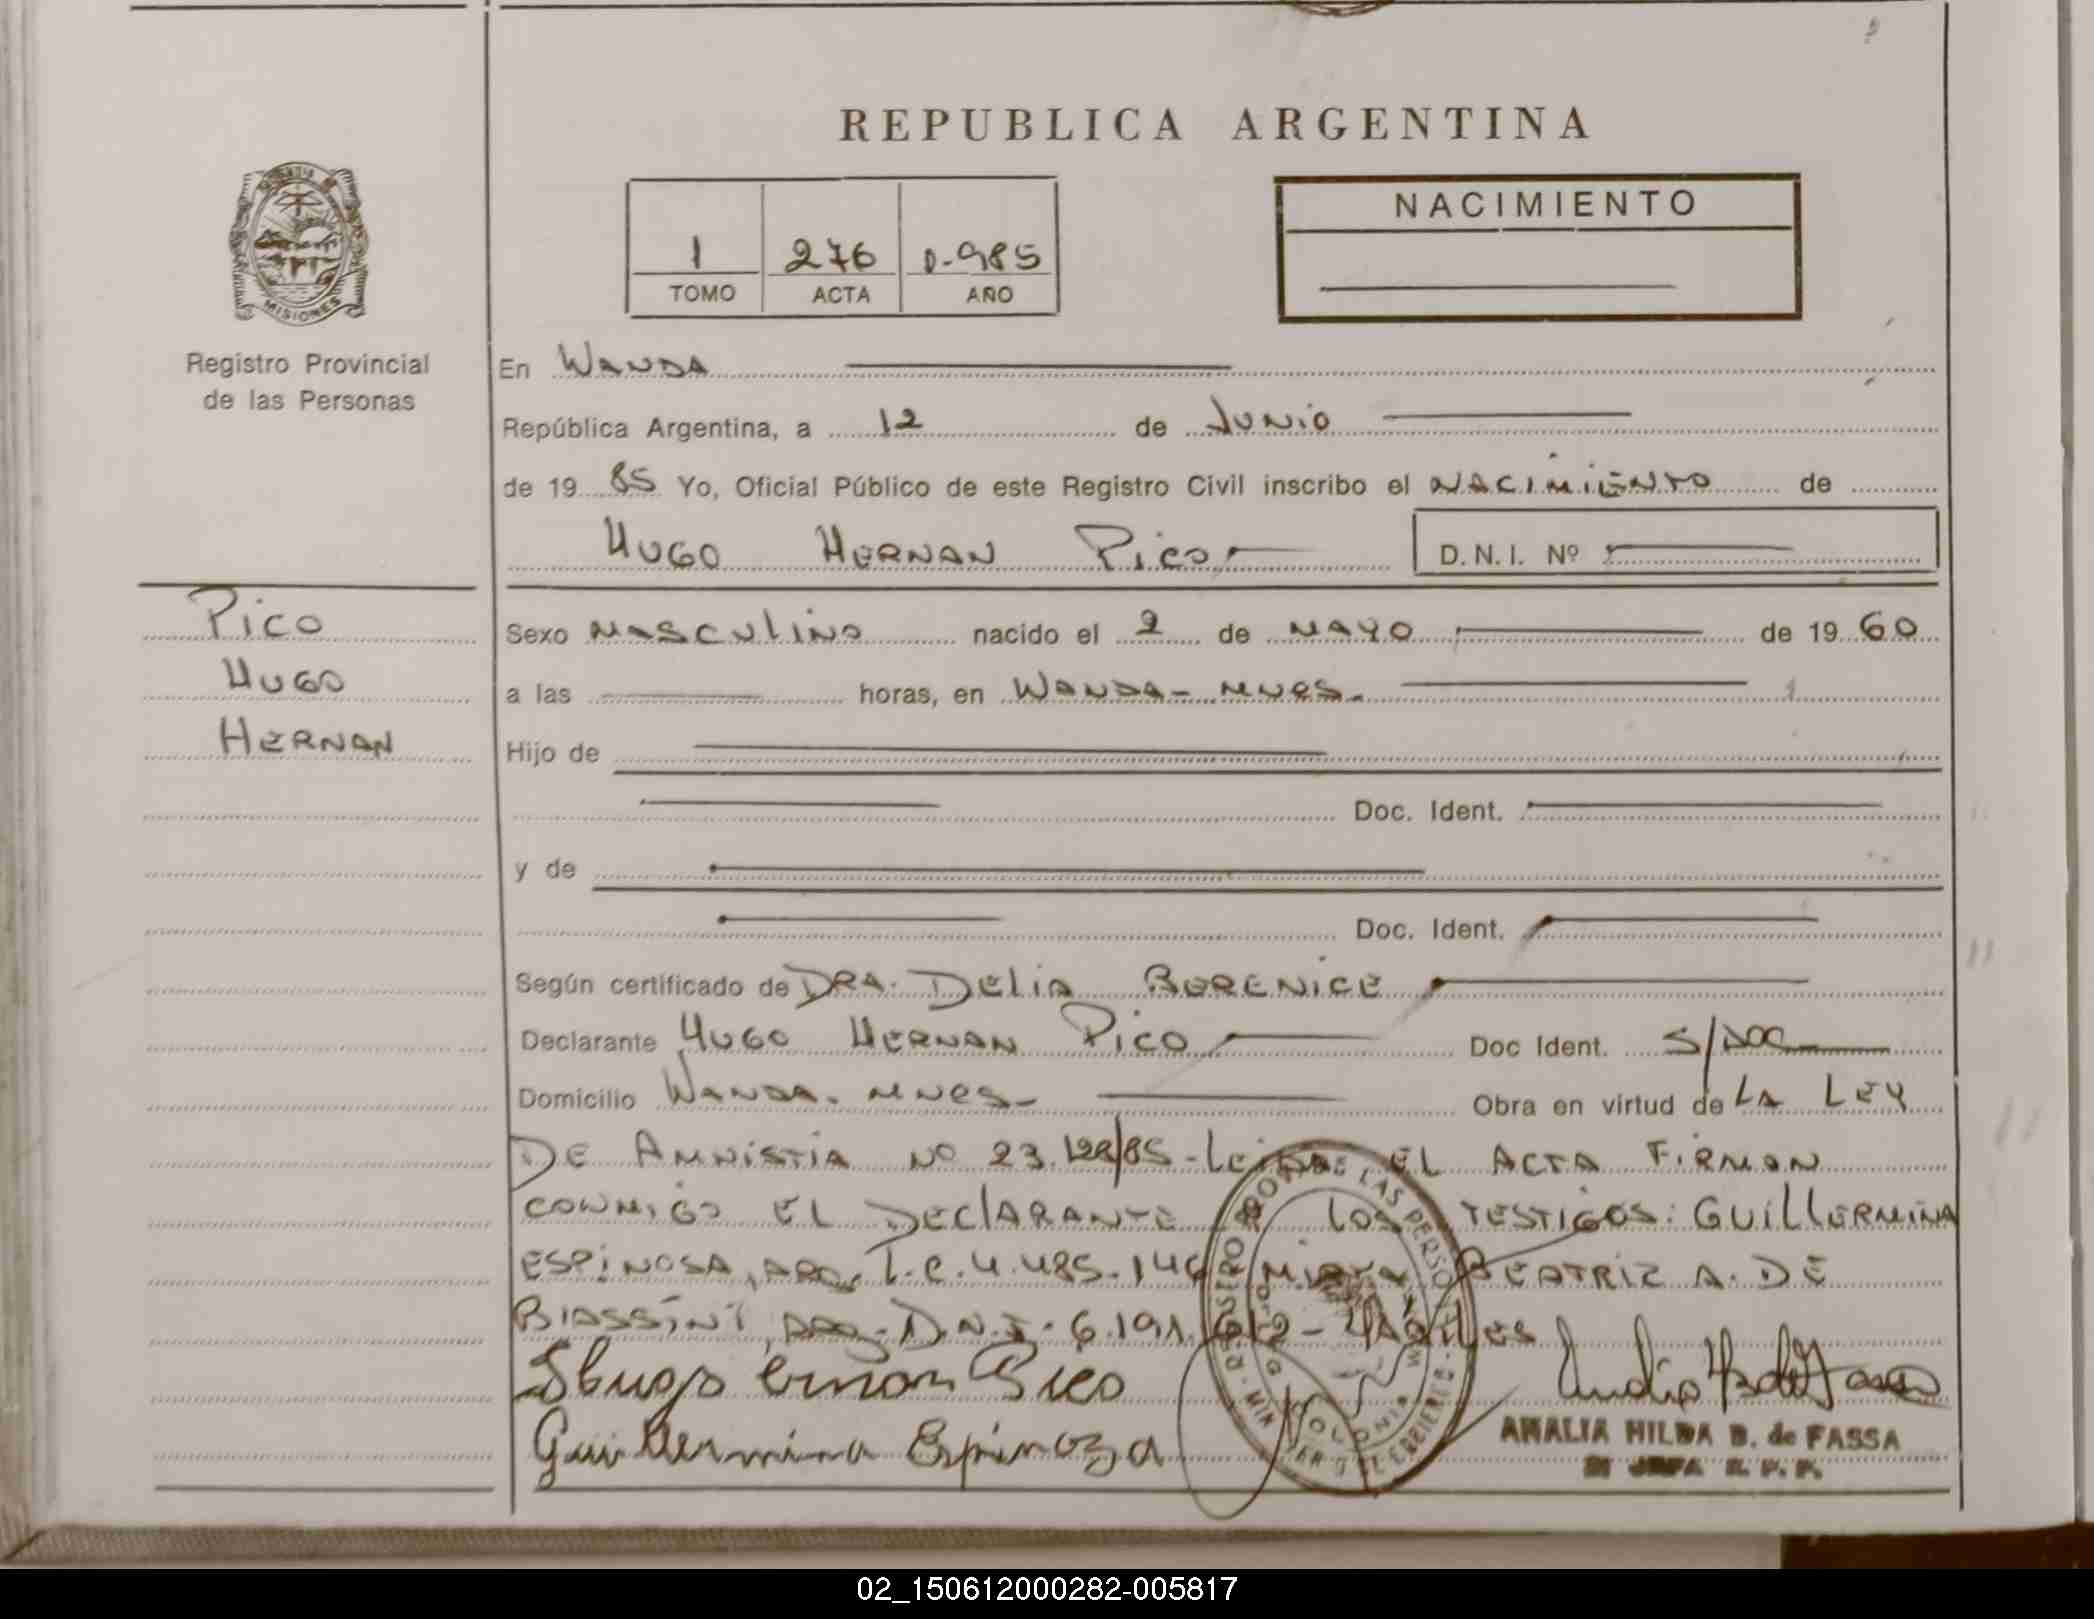 REPUBLICA ARGENTINA
NACIMIENTO
1 276 1.985
TOMO ACTA AÑO
MISIONES
Registro Provincial
de las Personas
En WANDA
República Argentina, a 12 de JUNIO
de 19 85 Yo, Oficial Público de este Registro Civil inscribo el NACIMIENTO de
HUGO HERNAN PICO D.N.I. Nº
PICO
HUGO
HERNAN
Sexo MASCULINO nacido el 2 de MAYO de 19 60
a las horas, en WANDA - MNES.
Hijo de
Doc. Ident.
y de
Doc. Ident.
Según certificado de DRA. DELIA BERENICE
Declarante HUGO HERNAN PICO Doc Ident. S/DOC
Domicilio WANDA. MNES- Obra en virtud de LA LEY
DE AMNISTIA Nº 23.128/85 - LEIDA EL ACTA FIRMAN
CONMIGO EL DECLARANTE LOS TESTIGOS: GUILLERMINA
ESPINOSA, ARG. L.C. 4.485.146 BEATRIZ A. DE
BIASSINI, ARG. D.N.I. 6.191.612 -
Hugo Ernan Pico
Guillermina Espinoza
ANALIA HILDA B. de FASSA
JEFA R. P. P.
02_150612000282-005817